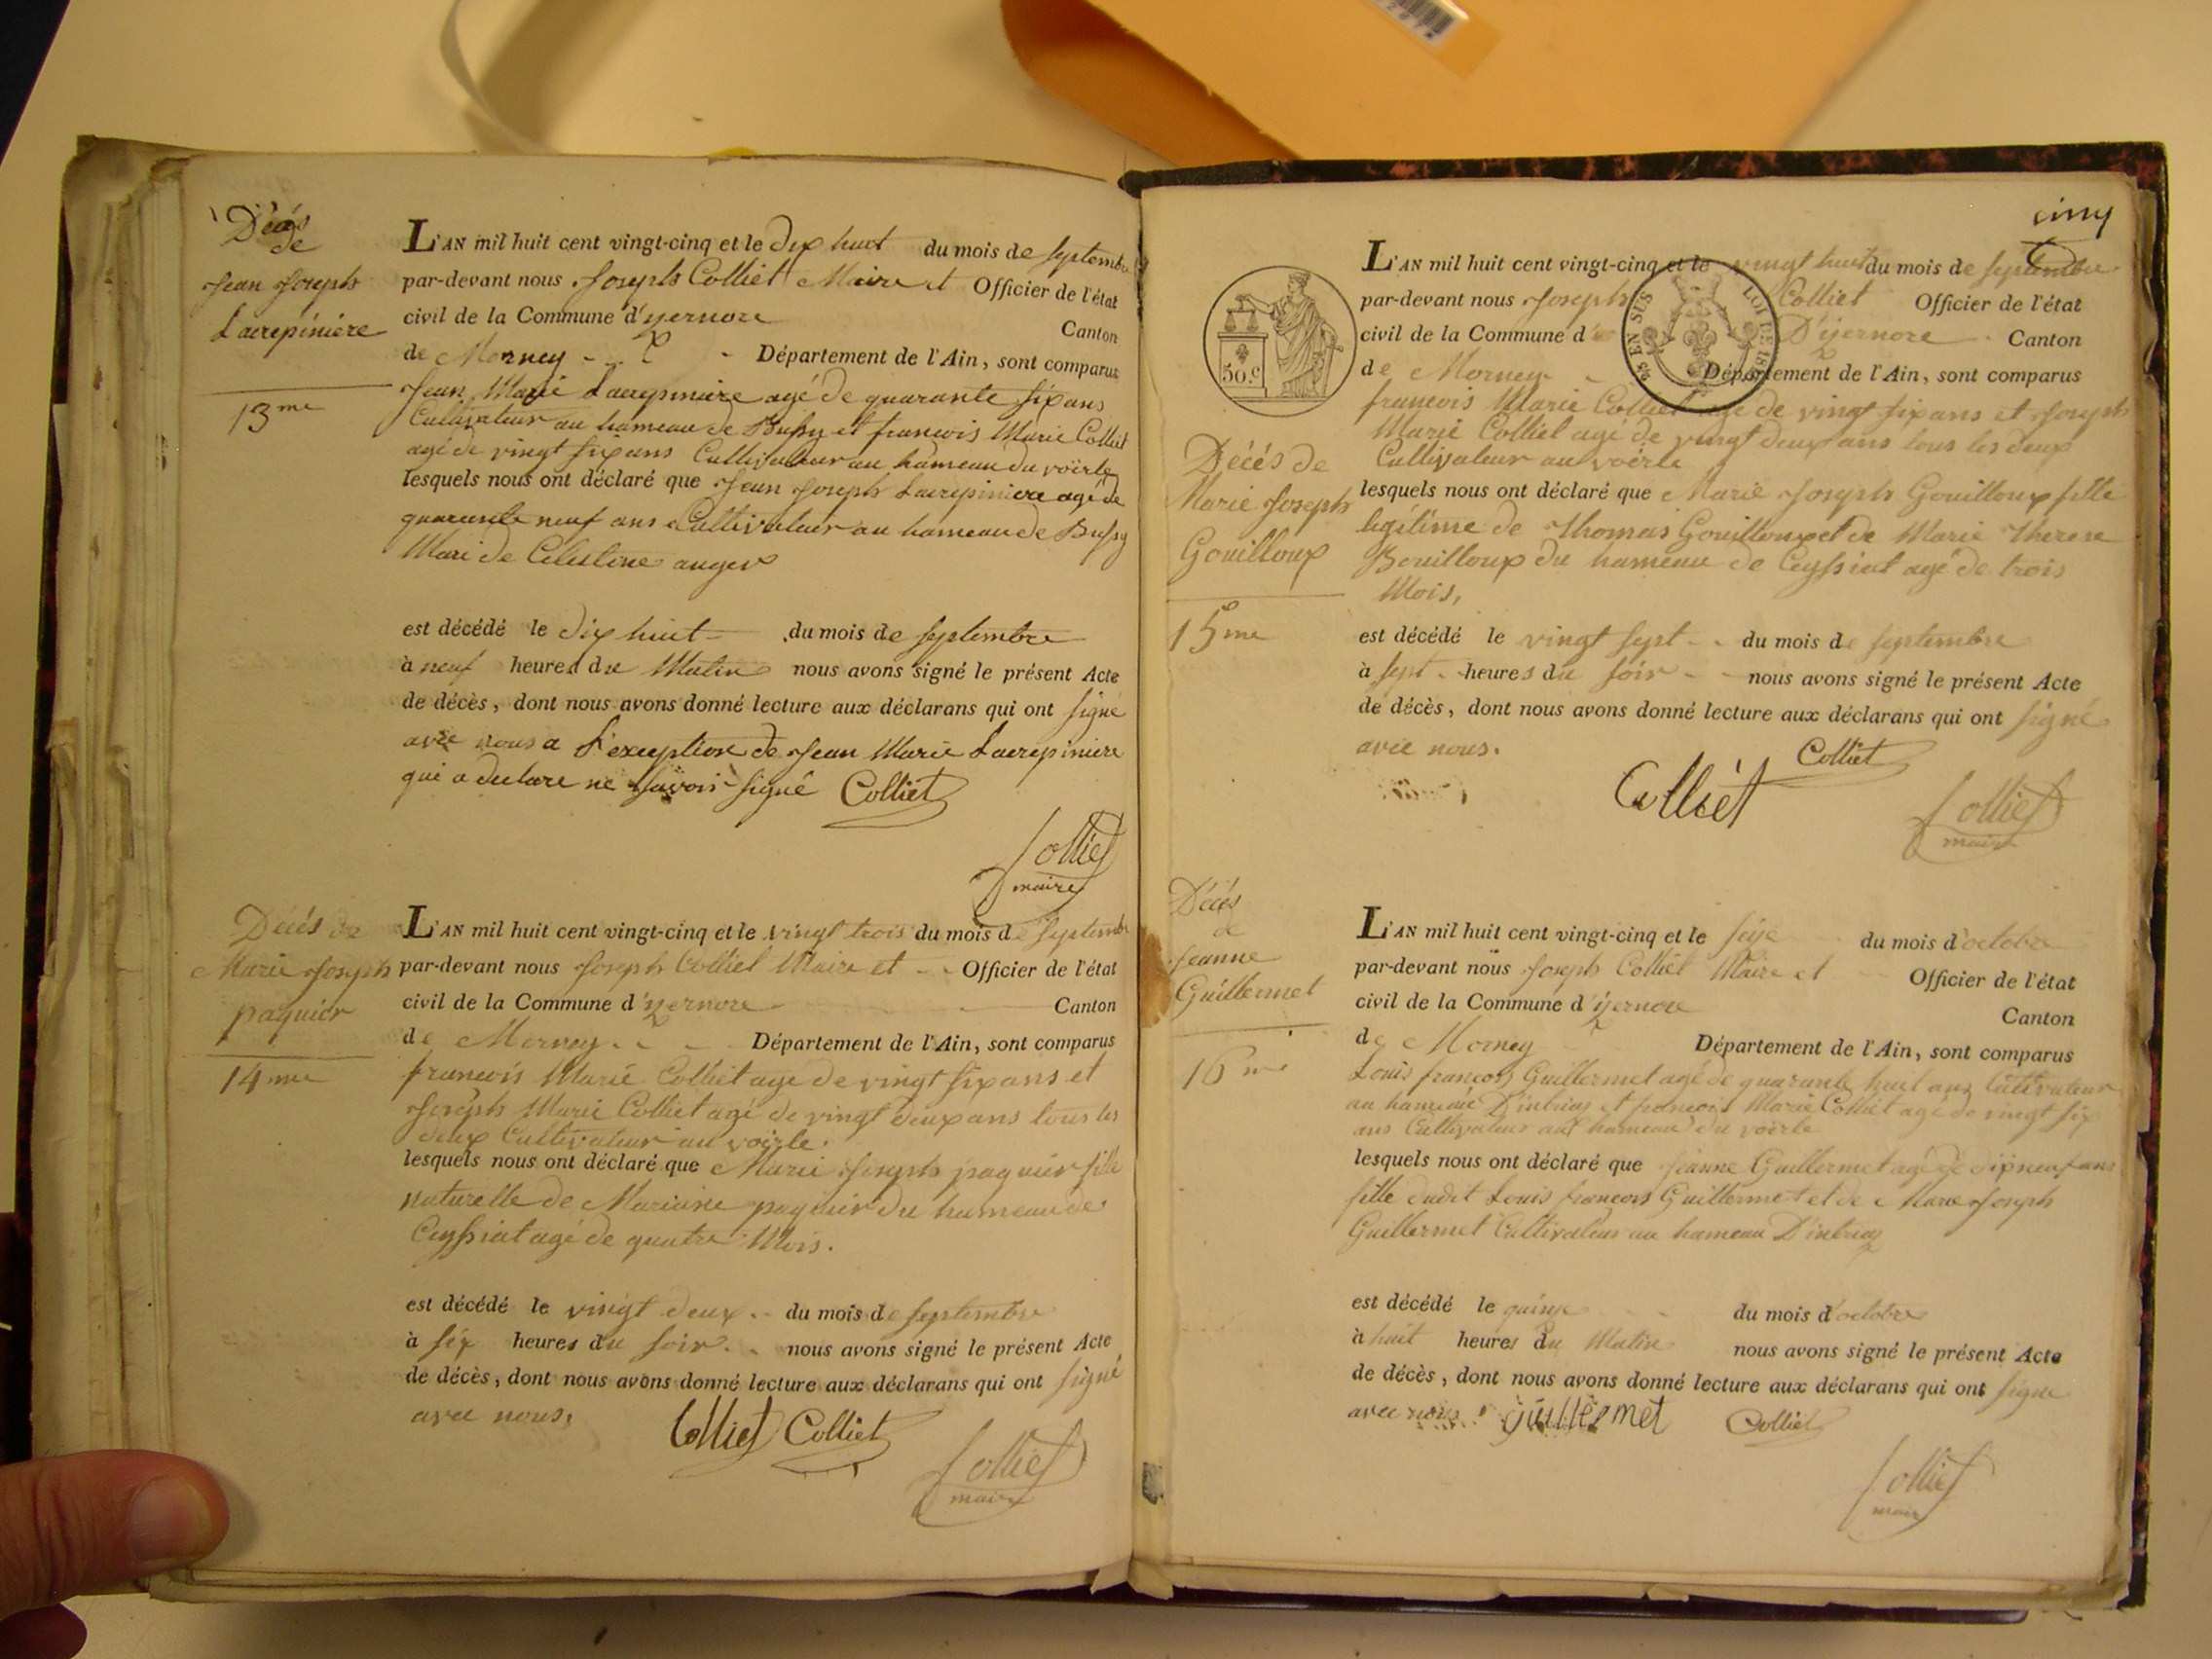 Décés
de
Jean Joseph
Lacrepiniere
13me
L'AN mil huit cent vingt-cinq et le dix huit du mois de septembre
par-devant nous Joseph Colliet Maire et Officier de l'état
civil de la Commune d'yzernore Canton
de Morney Département de l'Ain, sont comparus
Jean Marie Lacrepiniere agé de quarante six ans
Cultivateur au hameau de Bussy et francois Marie Colliet
agé de vingt six ans Cultivateur au hameau du voërle
lesquels nous ont déclaré que Jean Joseph Lacrepiniere agé de
quarante neuf ans Cultivateur au hameau de Bussy
Mari de Celestine auger
est décédé le dix huit du mois de septembre
à neuf heures du Matin nous avons signé le présent Acte
de décès, dont nous avons donné lecture aux déclarans qui ont signé
avec nous a l'exception de Jean Marie Lacrepiniere
qui a declare ne savoir signé Colliet
Colliet
maire
Décés de
Marie Joseph
paquier
14me
L'AN mil huit cent vingt-cinq et le vingt trois du mois de septembre
par-devant nous Joseph Colliet Maire et Officier de l'état
civil de la Commune d'yzernore Canton
de Mornay Département de l'Ain, sont comparus
francois Marie Colliet agé de vingt six ans et
Joseph Marie Colliet agé de vingt deux ans tous les
deux Cultivateur au voërle.
lesquels nous ont déclaré que Marie Joseph paquier fille
naturelle de Mariane paquier du hameau de
Ceyssiat agé de quatre Mois.
est décédé le vingt deux du mois de septembre
à six heures du soir nous avons signé le présent Acte
de décès, dont nous avons donné lecture aux déclarans qui ont signé
avec nous,
Colliet Colliet
Colliet
maire
cinq
50.c
EN SUS LOI DE
L'AN mil huit cent vingt-cinq et le vingt huit du mois de septembre
par-devant nous Joseph Colliet Officier de l'état
civil de la Commune d' D'yzernore Canton
de Morney Département de l'Ain, sont comparus
francois Marie Colliet agé de vingt six ans et Joseph
Marie Colliet agé de vingt deux ans tous les deux
Cultivateur au voërle
Décés de
Marie Joseph
Gouilloux
15me
lesquels nous ont déclaré que Marie Joseph Gouilloux fille
legitime de Thomas Gouilloux et de Marie Therese
Bouilloux du hameau de Ceyssiat agé de trois
Mois,
est décédé le vingt sept du mois de septembre
à sept heures du soir nous avons signé le présent Acte
de décès, dont nous avons donné lecture aux déclarans qui ont signé
avec nous.
Colliet
Colliet
Colliet
maire
Décés
de
Jeanne
Guillermet
16me
L'AN mil huit cent vingt-cinq et le seize du mois d'octobre
par-devant nous Joseph Colliet Maire et Officier de l'état
civil de la Commune d'yzernore Canton
de Morney Département de l'Ain, sont comparus
Louis francois Guillermet agé de quarante huit ans Cultivateur
au hameau D'intriaz et francois Marie Colliet agé de vingt six
ans Cultivateur au hameau du voërle
lesquels nous ont déclaré que Jeanne Guillermet agé de dix neuf ans
fille dudit Louis francois Guillermet et de Marie Joseph
Guillermet Cultivateur au hameau D'intriaz
est décédé le quinze du mois d'octobre
à huit heures du Matin nous avons signé le présent Acte
de décès, dont nous avons donné lecture aux déclarans qui ont signé
avec nous. guillermet Colliet
Colliet
maire